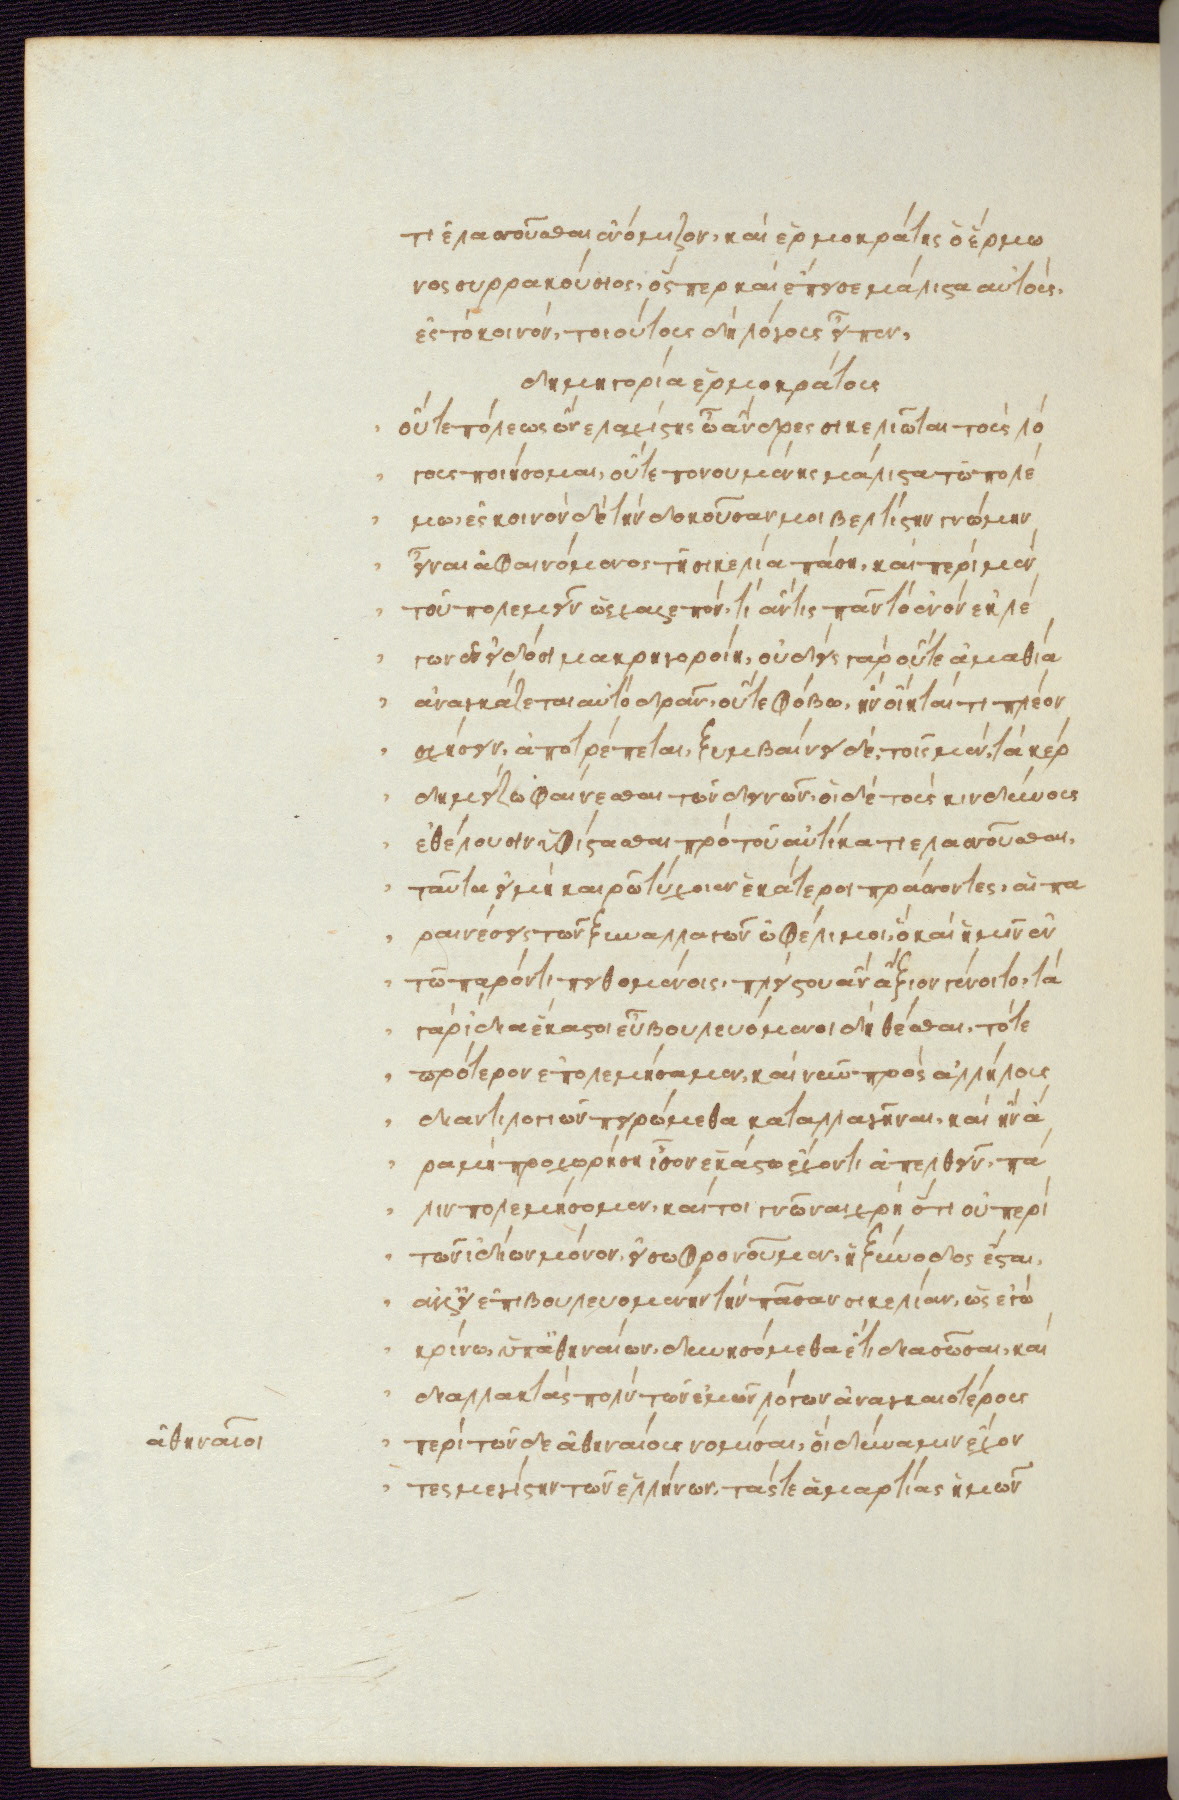 τι ἐλασσοῦσθαι ἐνόμιζον, καὶ ἑρμοκράτης ὁ ἕρμω
νος συρρακούσιος, ὅς περ καὶ ἔπεισε μάλιστα αὐτούς,
ἐς τὸ κοινὸν, τοιούτους δὴ λόγους εἶπεν,
δημηγορία ἑρμοκράτους
οὔτε πόλεως ὢν ἐλαχίστης ὦ ἄνδρες σικελιῶται τοὺς λό
γους ποιήσομαι, οὔτε πονουμένης μάλιστα τῷ πολέ
μω, ἐς κοινὸν δὲ τὴν δοκοῦσαν μοι βελτίστην γνώμην
εἶναι ἀποφαινόμενος τῇ σικελία πάση, καὶ περὶ μὲν
τοῦ πολεμεῖν ὡς χαλεπόν, τί ἄν τις πᾶν τὸ ἐνὸν ἐκλέ
γων ἐν εἰδόσι μακρηγοροίη, οὐδεὶς γὰρ οὔτε ἀμαθία
ἀναγκάζεται αὐτὸ δρᾶν, οὔτε φόβω, ἢν οἴηταί τι πλέον
σχήσειν, ἀποτρέπεται, ξυμβαίνει δὲ, τοῖς μὲν, τὰ κέρ
δη μείζω φαίνεσθαι τῶν δεινῶν, οἱ δὲ τοὺς κινδύνους
ἐθέλουσιν ὑφίστασθαι πρὸ τοῦ αὐτίκα τι ἐλασσοῦσθαι,
ταῦτα εἰ μὴ καιρῷ τύχοιεν ἑκάτεροι πράσσοντες, αἱ πα
ραινέσεις τῶν ξυναλλαγῶν ὠφέλιμοι, ὃ καὶ ἡμῖν ἐν
τῷ παρόντι πειθομένοις, πλείστου ἂν ἄξιον γένοιτο, τὰ
γὰρ ἴδια ἕκαστοι εὖ βουλευόμενοι δὴ θέσθαι, τότε
πρότερον ἐπολεμήσαμεν, καὶ νῦν πρὸς ἀλλήλους
δι' ἀντιλογιῶν πειρώμεθα καταλλαγῆναι, καὶ ἢν ἄ
ρα μὴ προχωρήση ἴσον ἑκάστω ἔχοντι ἀπελθεῖν, πά
λιν πολεμήσομεν, καίτοι γνῶναι χρὴ ὅτι οὐ περὶ
τῶν ἰδίων μόνον, εἰ σωφρονοῦμεν, ἡ ξύνοδος ἔσται,
ἀλλ' εἰ ἐπιβουλευομένην τὴν πᾶσαν σικελίαν, ὡς ἐγὼ
κρίνω, ὑπ' ἀθηναίων, δυνησόμεθα ἔτι διασῶσαι, καὶ
διαλλακτὰς πολὺ τῶν ἐμῶν λόγων ἀναγκαιοτέρους
περὶ τῶνδε ἀθηναίους νομίσαι, οἳ δύναμιν ἔχον
τες μεγίστην τῶν ἑλλήνων, τάς τε ἁμαρτίας ἡμῶν
ἀθηναῖοι